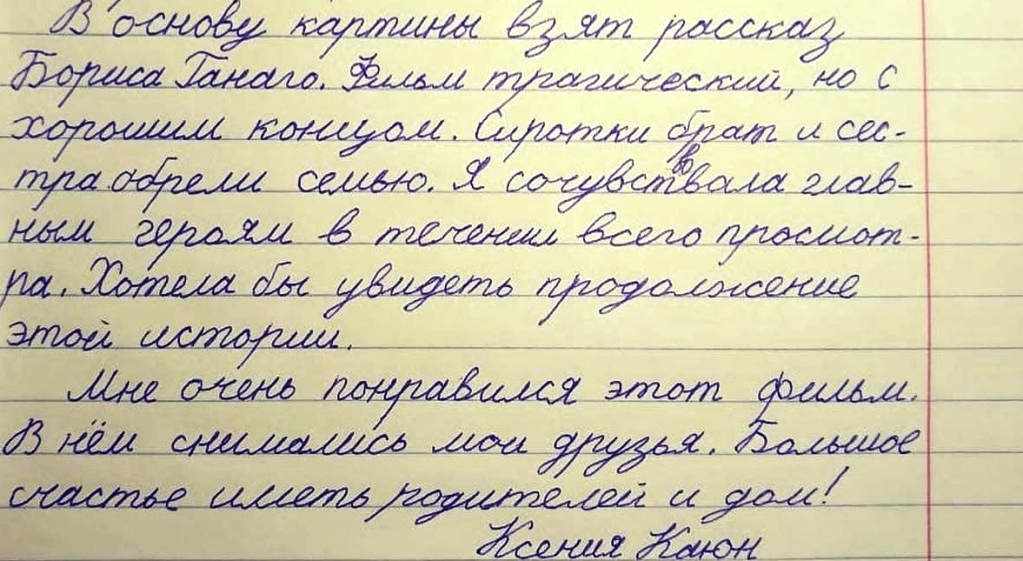 В основу картины взят рассказ
Бориса Ганаго. Фильм трагический, но с
хорошим концом. Сиротки брат и сес-
тра обрели семью. Я сочувствовала глав-
ным героям в течении всего просмот-
ра. Хотела бы увидеть продолжение
этой истории.
Мне очень понравился этот фильм.
В нём снимались мои друзья. Большое
счастье иметь родителей и дом!
Ксения Каюн